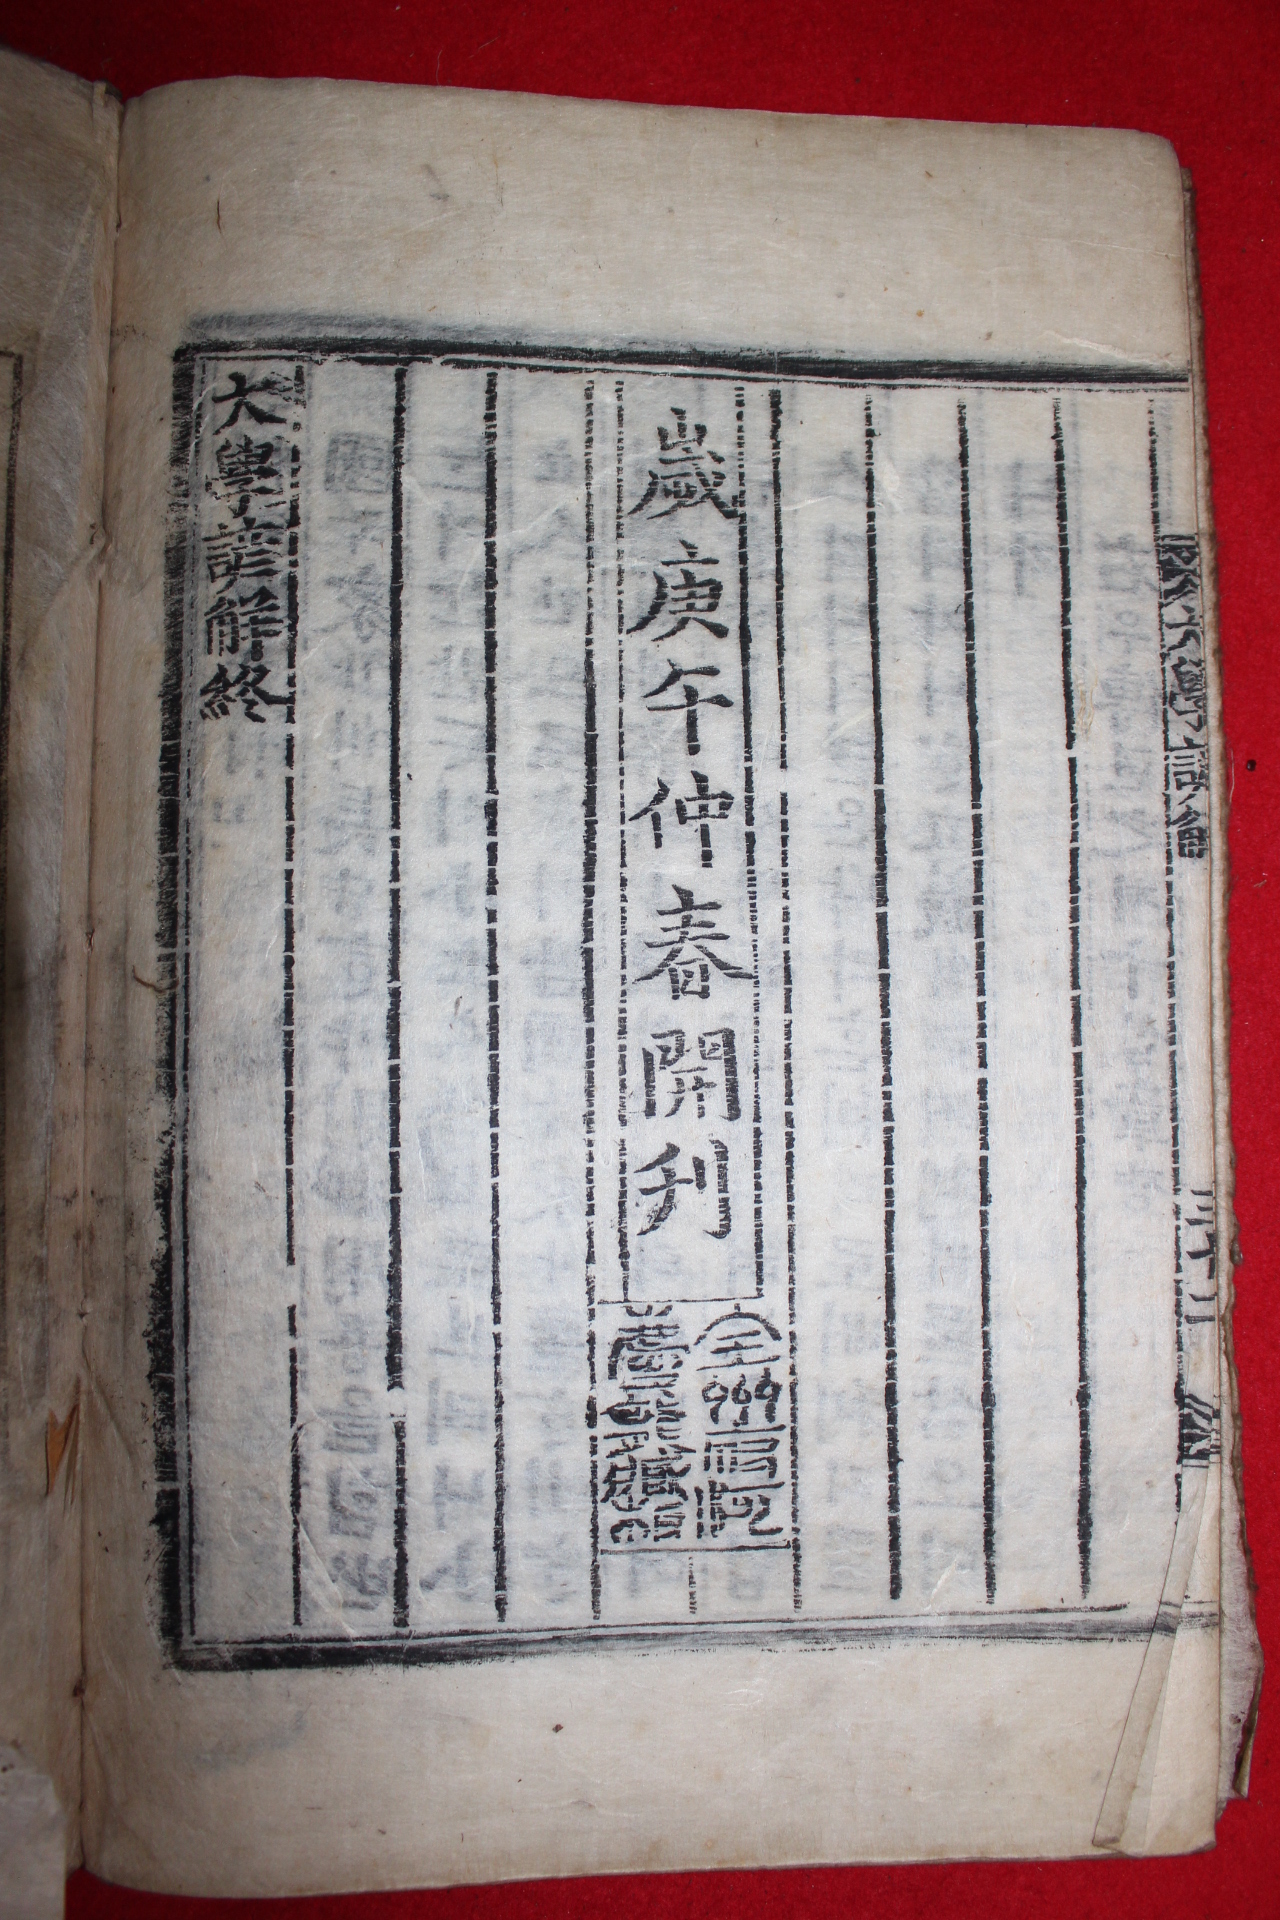 大學諺觧
三十二
歲庚午仲春開刊
全州府河
慶龍藏板
大學諺觧終